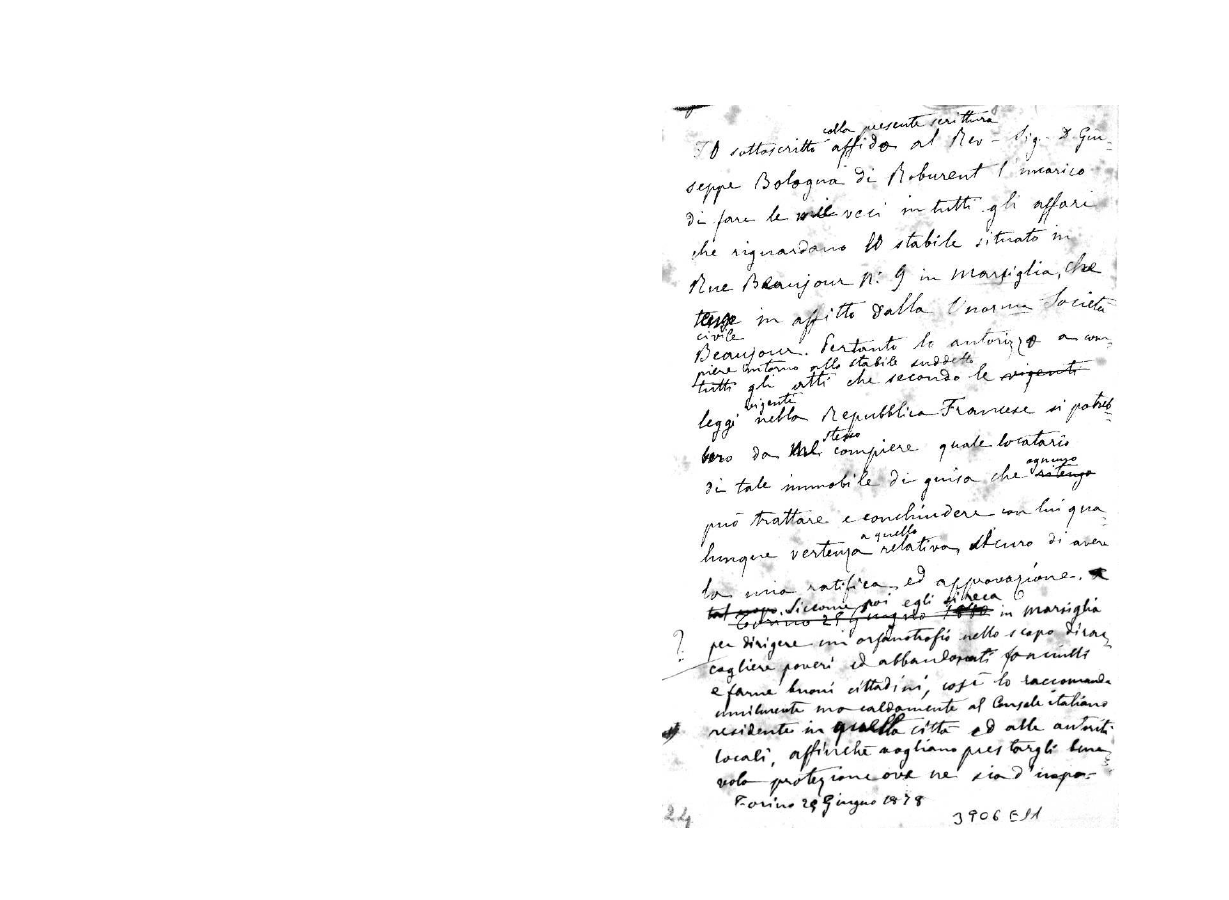 colla presente scrittura
Io sottoscritto affido al Rev. Sig. D. Giu-
seppe Bologna di Roburent l'incarico
di fare le mie veci in tutti gli affari
che riguardano lo stabile situato in
Rue Beaujour N. 9 in Marsiglia, che
tengo in affitto dalla Società
civile
Beaujour. Pertanto lo autorizzo a com-
piere intorno allo stabile suddetto
tutti gli atti che secondo le vigenti
vigenti
leggi nella Repubblica Francese si potreb-
stesso
bero da me compiere quale locatario
ognuno
di tale immobile di guisa che ritengo
può trattare e conchiudere con lui qua-
a quello
lunque vertenza relativa, sicuro di avere
la mia ratifica ed approvazione.
tal uopo. Siccome poi egli si reca
Torino 29 Giugno 1878 in Marsiglia
per dirigere un orfanotrofio nello scopo di rac-
cogliere poveri ed abbandonati fanciulli
e farne buoni cittadini, così lo raccomando
umilmente ma caldamente al Console italiano
residente in quella città ed alle autorità
locali, affinchè vogliano prestargli bene-
vola protezione ove ne sia d'uopo.
Torino 29 Giugno 1878
3906 E51
24
?